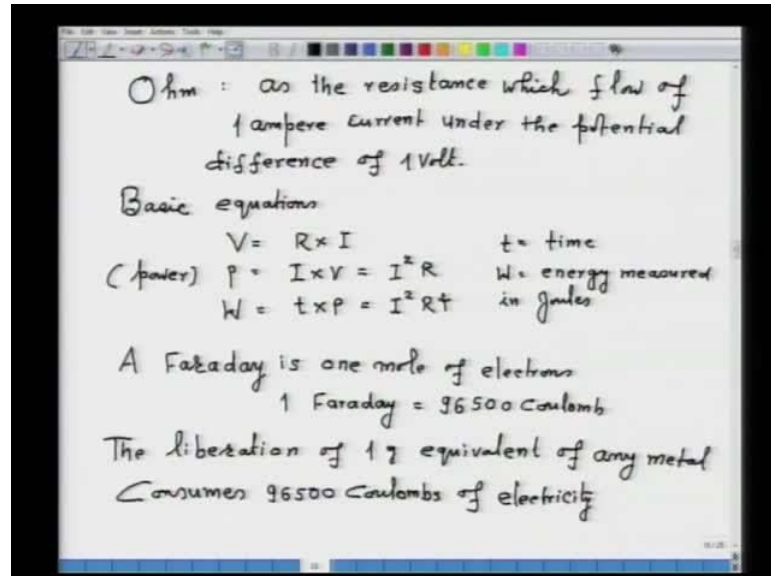 Ohm : as the resistance which flow of
1 ampere current under the potential
difference of 1 Volt.
Basic equations
V = R × I t = time
(power) P = I × V = I² R W = energy measured
W = t × P = I² R t in Joules
A Faraday is one mole of electrons
1 Faraday = 96500 Coulomb
The liberation of 1 g equivalent of any metal
Consumes 96500 Coulombs of electricity